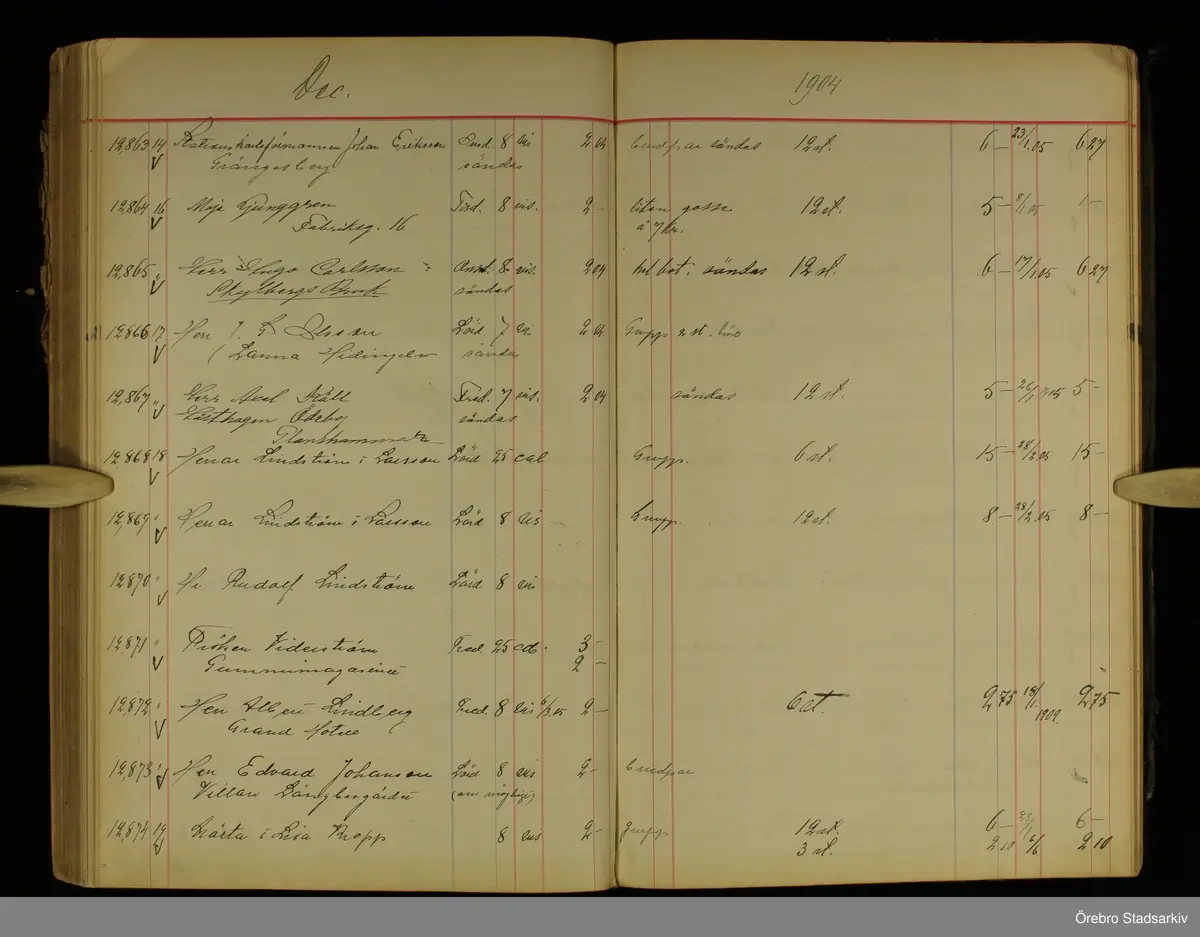 Dec. 1904
12,863 14 Stationskarlsförmannen Johan Eriksson Onsd. 8 vis 2 04 Brudpar sändas 12 st. 6 – 23/1.05 6 27
V Grängesberg sändas
12,864 16 Maja Ljunggren Tisd. 8 vis. 2 – liten gosse 12 st. 5 – 8/1.05 1 –
V Fabriksg. 16 à 7 kr.
12,865 " Herr Hugo Carlsson 8 vis. 2 04 hel bot. sändas 12 st. 6 – 17/1.05 6 27
V Skyllbergs Bruk sändas
12,866 17 Herr J. G. Olsson Lörd 7 vis 2 04 Grupp 2 st.
V (Lanna Hidingebro sändas
12,867 " Herr Axel Fred. 7 vis. 2 04 sändas 12 st. 5 – 5 –
V Ödeby sändas
Glanshammar
12,868 18 Herrar Lindström i Larsson Lörd 25 cab Grupp. 6 st. 15 – 28/12.05 15 –
V
12,869 " Herrar Lindström i Larsson Lörd 8 vis Grupp. 12 st. 8 – 28/12.05 8 –
V
12,870 " Hr Rudolf Lindström Lörd 8 vis
V
12,871 " Fröken Viderström Fred. 25 cab. 3 –
V Gummimagasinet 2 –
12,872 " Herr Albert Lindberg Fred. 8 vis 6/3.05 2 – 6 st. 2 75 18/1 1909. 2 75
V Grand Hotel
12,873 " Herr Edvard Johanson Lörd 8 vis 2 – Brudpar
V Villan Längbergsgärdet (om möjligt)
12,874 19 Märta i Lisa Kropp 8 vis 2 – grupp 12 st. 6 – 6 –
V 3 st. 2 10 6/6 2 10
Örebro Stadsarkiv